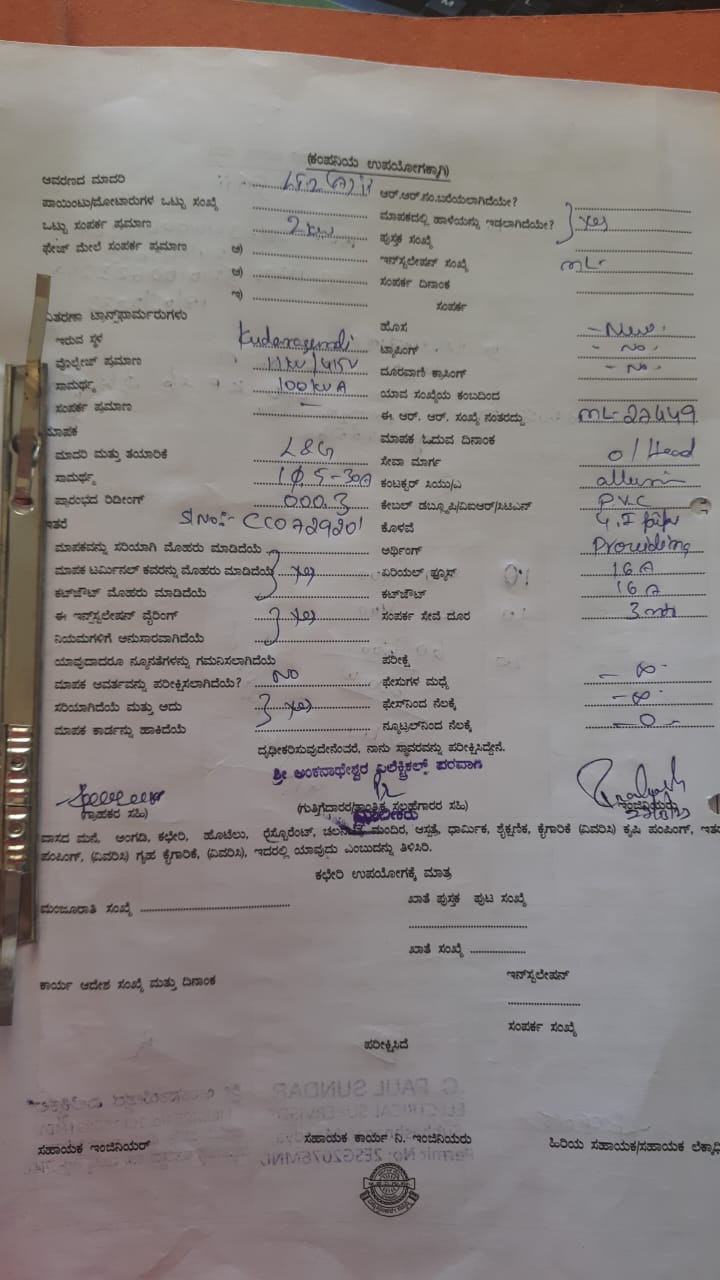 (ಕಂಪನಿಯ ಉಪಯೋಗಕ್ಕಾಗಿ)
ಆವರಣದ ಮಾದರಿ
ಪಾಯಿಂಟು/ಮೋಟಾರುಗಳ ಒಟ್ಟು ಸಂಖ್ಯೆ
ಒಟ್ಟು ಸಂಪರ್ಕ ಪ್ರಮಾಣ 2 kw
ಫೇಜ್ ಮೇಲೆ ಸಂಪರ್ಕ ಪ್ರಮಾಣ ಅ)
ಆ)
ಇ)
ವಿತರಣಾ ಟ್ರಾನ್ಸ್‌ಫಾರ್ಮರುಗಳು
ಇರುವ ಸ್ಥಳ
ವೊಲ್ಟೇಜ್ ಪ್ರಮಾಣ 11 KV/415V
ಸಾಮರ್ಥ್ಯ 100 KVA
ಸಂಪರ್ಕ ಪ್ರಮಾಣ —
ಮಾಪಕ
ಮಾದರಿ ಮತ್ತು ತಯಾರಿಕೆ L&G
ಸಾಮರ್ಥ್ಯ 1Φ, 5-30A
ಪ್ರಾರಂಭದ ರಿಡೀಂಗ್ 000.3
ಇತರೆ Sl No:- CC0729201
ಮಾಪಕವನ್ನು ಸರಿಯಾಗಿ ಮೊಹರು ಮಾಡಿದೆಯೆ
ಮಾಪಕ ಟರ್ಮಿನಲ್ ಕವರನ್ನು ಮೊಹರು ಮಾಡಿದೆಯೆ yes
ಕಟ್‌ಔಟ್ ಮೊಹರು ಮಾಡಿದೆಯೆ
ಈ ಇನ್‌ಸ್ಟಲೇಷನ್ ವೈರಿಂಗ್ yes
ನಿಯಮಗಳಿಗೆ ಅನುಸಾರವಾಗಿದೆಯೆ
ಯಾವುದಾದರೂ ನ್ಯೂನತೆಗಳನ್ನು ಗಮನಿಸಲಾಗಿದೆಯೆ
ಮಾಪಕ ಆವರ್ತವನ್ನು ಪರೀಕ್ಷಿಸಲಾಗಿದೆಯೆ? NO
ಸರಿಯಾಗಿದೆಯೆ ಮತ್ತು ಅದು yes
ಮಾಪಕ ಕಾರ್ಡನ್ನು ಹಾಕಿದೆಯೆ
ಆರ್.ಆರ್.ನಂ.ಬರೆಯಲಾಗಿದೆಯೇ?
ಮಾಪಕದಲ್ಲಿ ಹಾಳೆಯನ್ನು ಇಡಲಾಗಿದೆಯೇ? yes
ಪುಸ್ತಕ ಸಂಖ್ಯೆ
ಇನ್‌ಸ್ಟಲೇಷನ್ ಸಂಖ್ಯೆ ML-
ಸಂಪರ್ಕ ದಿನಾಂಕ
ಸಂಪರ್ಕ
ಹೊಸ - New -
ಟ್ಯಾಪಿಂಗ್ - No -
ದೂರವಾಣಿ ಕ್ರಾಸಿಂಗ್ - No -
ಯಾವ ಸಂಖ್ಯೆಯ ಕಂಬದಿಂದ
ಈ ಆರ್. ಆರ್. ಸಂಖ್ಯೆ ನಂತರದ್ದು ML-27449
ಮಾಪಕ ಓದುವ ದಿನಾಂಕ
ಸೇವಾ ಮಾರ್ಗ o/Head
ಕಂಟಕ್ಟರ್ ಸಿಯು/ಎ
ಕೇಬಲ್ ಡಬ್ಲೂಪಿ/ವಿಐಆರ್/ಸಿಟಿಎಸ್ P.V.C
ಕೊಳವೆ G.I pipe
ಅರ್ಥಿಂಗ್ Providing
ಏರಿಯಲ್ ಫ್ಯೂಸ್ 16 A
ಕಟ್‌ಔಟ್ 16 A
ಸಂಪರ್ಕ ಸೇವೆ ದೂರ
ಪರೀಕ್ಷೆ
ಫೇಸುಗಳ ಮಧ್ಯೆ - ∞ -
ಫೇಸ್‌ನಿಂದ ನೆಲಕ್ಕೆ - ∞ -
ನ್ಯೂಟ್ರಲ್‌ನಿಂದ ನೆಲಕ್ಕೆ - 0 -
ದೃಢೀಕರಿಸುವುದೇನೆಂದರೆ, ನಾನು ಸ್ಥಾವರವನ್ನು ಪರೀಕ್ಷಿಸಿದ್ದೇನೆ.
ಶ್ರೀ ಅಂಕನಾಥೇಶ್ವರ ಎಲೆಕ್ಟ್ರಿಕಲ್ಸ್ ಪರವಾಗಿ
ಮಾಲೀಕರು
(ಗ್ರಾಹಕರ ಸಹಿ) (ಗುತ್ತಿಗೆದಾರರ/ತಾಂತ್ರಿಕ ಸಲಹೆಗಾರರ ಸಹಿ) ಇಂಜಿನಿಯರು
ವಾಸದ ಮನೆ, ಅಂಗಡಿ, ಕಛೇರಿ, ಹೊಟೆಲು, ರೈಸ್ಟೊರೆಂಟ್, ಚಲನಚಿತ್ರ ಮಂದಿರ, ಆಸ್ಪತ್ರೆ, ಧಾರ್ಮಿಕ, ಶೈಕ್ಷಣಿಕ, ಕೈಗಾರಿಕೆ (ವಿವರಿಸಿ) ಕೃಷಿ ಪಂಪಿಂಗ್,
ಪಂಪಿಂಗ್, (ವಿವರಿಸಿ) ಗೃಹ ಕೈಗಾರಿಕೆ, (ವಿವರಿಸಿ), ಇದರಲ್ಲಿ ಯಾವುದು ಎಂಬುದನ್ನು ತಿಳಿಸಿರಿ.
ಕಛೇರಿ ಉಪಯೋಗಕ್ಕೆ ಮಾತ್ರ
ಮಂಜೂರಾತಿ ಸಂಖ್ಯೆ ಖಾತೆ ಪುಸ್ತಕ ಪುಟ ಸಂಖ್ಯೆ
ಖಾತೆ ಸಂಖ್ಯೆ
ಕಾರ್ಯ ಆದೇಶ ಸಂಖ್ಯೆ ಮತ್ತು ದಿನಾಂಕ ಇನ್‌ಸ್ಟಲೇಷನ್
ಸಂಪರ್ಕ ಸಂಖ್ಯೆ
ಪರೀಕ್ಷಿಸಿದೆ
ಸಹಾಯಕ ಇಂಜಿನಿಯರ್ ಸಹಾಯಕ ಕಾರ್ಯ ನಿ. ಇಂಜಿನಿಯರು